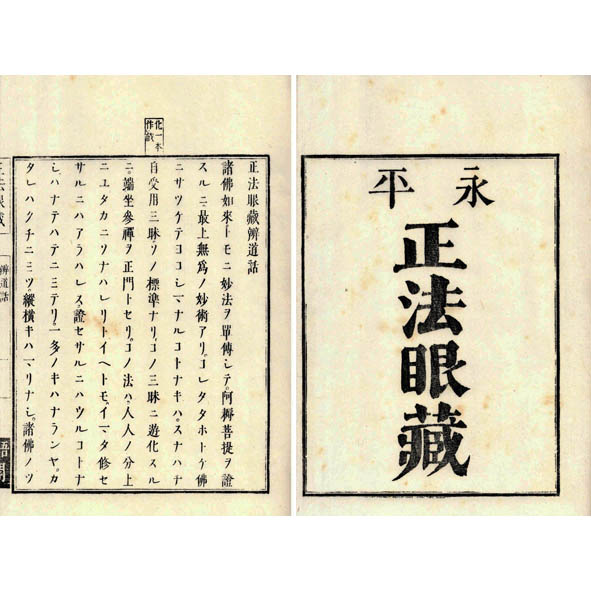 永平
正法眼藏
化一本
作戲
正法眼藏辨道話
諸佛如來トモニ妙法ヲ單傳シテ阿耨菩提ヲ證
スルニ最上無爲ノ妙術アリコレタタホトケ佛
ニサツケテヨコシマナルコトナキハスナハチ
自受用三昧ソノ標準ナリコノ三昧ニ遊化スル
ニ端坐參禪ヲ正門トセリコノ法ハ人人ノ分上
ニユタカニソナハレリトイヘトモイマタ修セ
サルニハアラハレス證セサルニハウルコトナ
シハナテハテニミテリ一多ノキハナランヤカ
タレハクチニミツ縱橫キハマリナシ諸佛ノツ
正法眼藏
辨道話